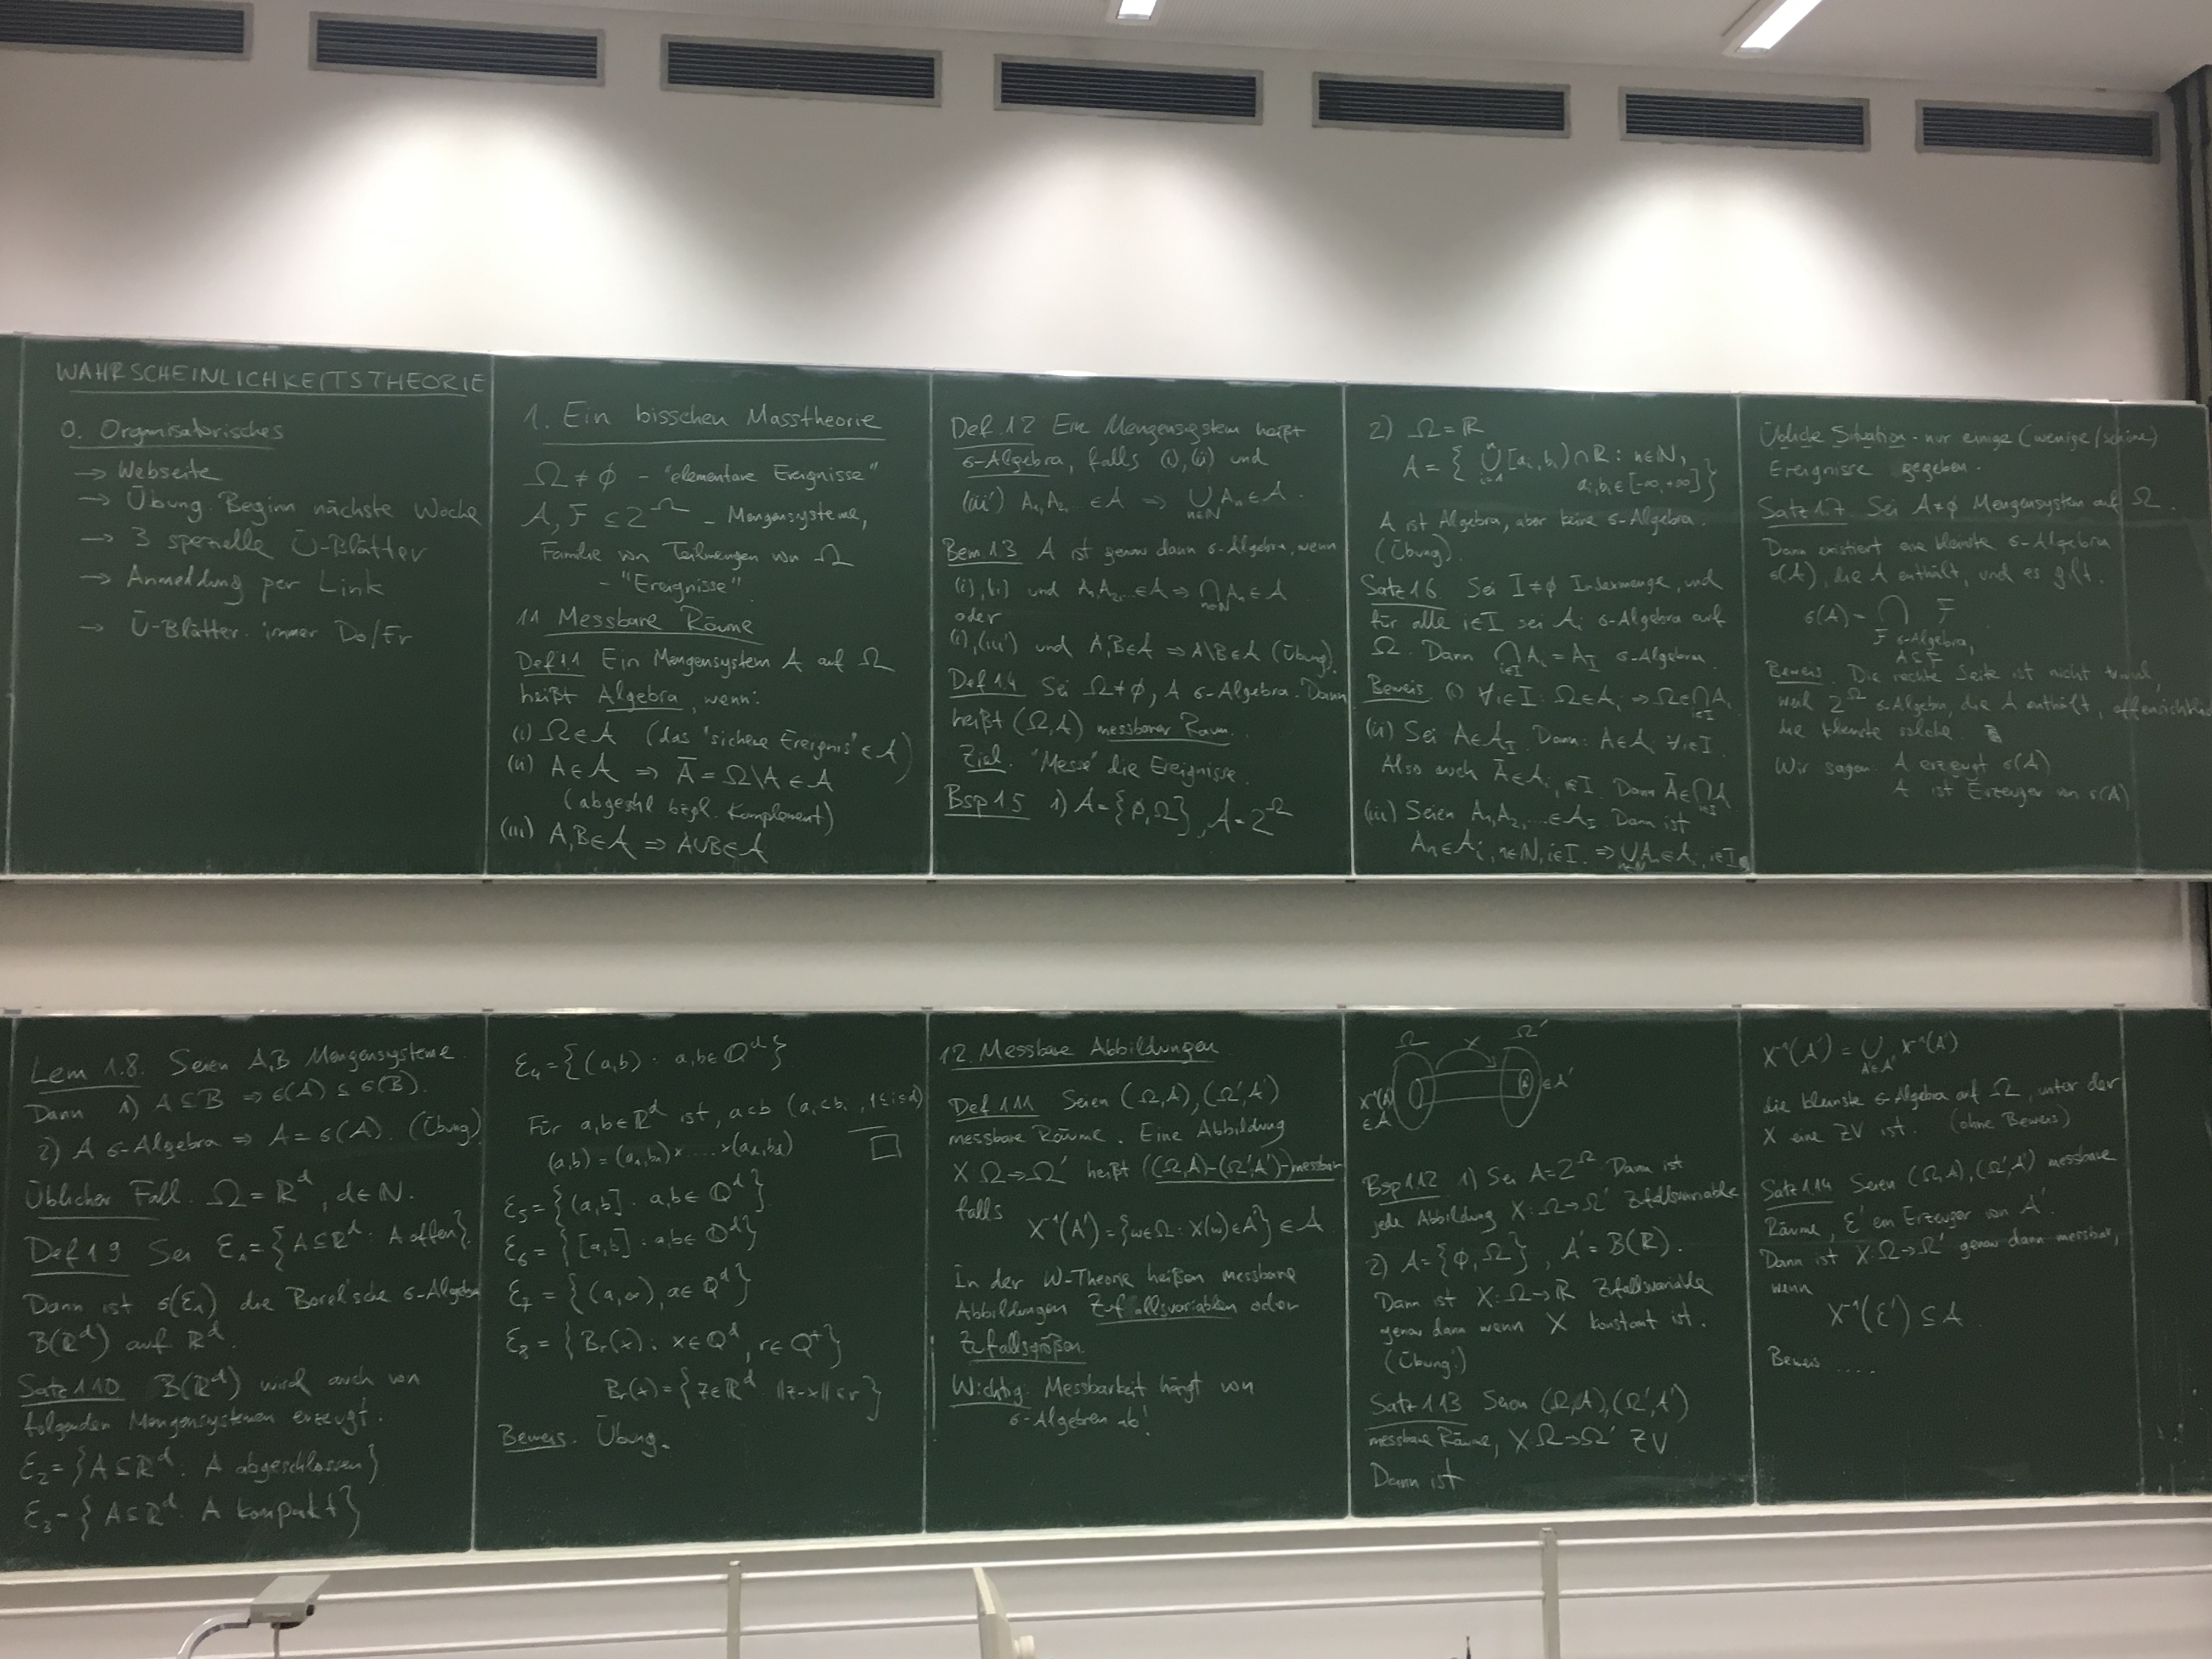 WAHRSCHEINLICHKEITSTHEORIE
0. Organisatorisches
→ Webseite
→ Übung: Beginn nächste Woche
→ 3 spezielle Ü-Blätter
→ Anmeldung per Link
→ Ü-Blätter: immer Do/Fr
1. Ein bisschen Masstheorie
Ω ≠ ∅ - "elementare Ereignisse"
A, F ⊆ 2^Ω - Mengensysteme,
Familie von Teilmengen von Ω
- "Ereignisse"
1.1 Messbare Räume
Def 1.1 Ein Mengensystem A auf Ω
heißt Algebra, wenn:
(i) Ω∈A (das "sichere Ereignis" ∈ A)
(ii) A∈A ⇒ Ā = Ω\A ∈ A
(abgeschl. bzgl. Komplement)
(iii) A,B∈A ⇒ A∪B∈A
Def. 1.2 Ein Mengensystem heißt
σ-Algebra, falls (i), (ii) und
(iii') A₁,A₂,... ∈A ⇒ ⋃_{n∈N} Aₙ∈A.
Bem 1.3 A ist genau dann σ-Algebra, wenn
(i),(ii) und A₁,A₂,...∈A ⇒ ⋂_{n∈N} Aₙ∈A
oder
(i),(iii') und A,B∈A ⇒ A\B∈A (Übung).
Def 1.4 Sei Ω≠∅, A σ-Algebra. Dann
heißt (Ω,A) messbarer Raum.
Ziel: "Messe" die Ereignisse.
Bsp 1.5 1) A={∅,Ω}, A=2^Ω
2) Ω=ℝ
A = { ⋃_{i=1}^n [aᵢ,bᵢ)∩ℝ : n∈N,
aᵢ,bᵢ∈[-∞,+∞] }
A ist Algebra, aber keine σ-Algebra.
(Übung).
Satz 1.6 Sei I≠∅ Indexmenge, und
für alle i∈I sei Aᵢ σ-Algebra auf
Ω. Dann ⋂_{i∈I} Aᵢ = A_I σ-Algebra.
Beweis. (i) ∀i∈I: Ω∈Aᵢ ⇒ Ω∈⋂_{i∈I} Aᵢ
(ii) Sei A∈A_I. Dann: A∈Aᵢ ∀i∈I.
Also auch Ā∈Aᵢ, i∈I. Dann Ā∈⋂_{i∈I} Aᵢ
(iii) Seien A₁,A₂,...∈A_I. Dann ist
Aₙ∈Aᵢ, n∈N, i∈I. ⇒ ⋃_{n∈N} Aₙ∈Aᵢ, i∈I
Übliche Situation: nur einige (wenige/schöne)
Ereignisse gegeben.
Satz 1.7. Sei A≠∅ Mengensystem auf Ω.
Dann existiert eine kleinste σ-Algebra
σ(A), die A enthält, und es gilt:
σ(A) = ⋂ F
F σ-Algebra,
A⊆F
Beweis. Die rechte Seite ist nicht trivial,
weil 2^Ω σ-Algebra, die A enthält, offensichtlich
die kleinste solche.
Wir sagen: A erzeugt σ(A)
A ist Erzeuger von σ(A)
Lem 1.8. Seien A,B Mengensysteme.
Dann 1) A⊆B ⇒ σ(A) ⊆ σ(B).
2) A σ-Algebra ⇒ A = σ(A). (Übung)
Üblicher Fall: Ω = ℝ^d, d∈N.
Def 1.9 Sei ℰ₁={A⊆ℝ^d: A offen}.
Dann ist σ(ℰ₁) die Borel'sche σ-Algebra
B(ℝ^d) auf ℝ^d.
Satz 1.10 B(ℝ^d) wird auch von
folgenden Mengensystemen erzeugt:
ℰ₂={A⊆ℝ^d: A abgeschlossen}
ℰ₃={A⊆ℝ^d: A kompakt}
ℰ₄={(a,b): a,b∈ℚ^d}
Für a,b∈ℝ^d ist, a<b (aᵢ<bᵢ, 1≤i≤d)
(a,b) = (a₁,b₁)×....×(a_d,b_d)
ℰ₅={(a,b]: a,b∈ℚ^d}
ℰ₆={[a,b]: a,b∈ℚ^d}
ℰ₇={(a,∞), a∈ℚ^d}
ℰ₈={B_r(x): x∈ℚ^d, r∈ℚ⁺}
B_r(x)={z∈ℝ^d: ||z-x||≤r}
Beweis. Übung.
1.2. Messbare Abbildungen
Def 1.11 Seien (Ω,A), (Ω',A')
messbare Räume. Eine Abbildung
X: Ω→Ω' heißt ((Ω,A)-(Ω',A')-)messbar
falls
X⁻¹(A') = {ω∈Ω: X(ω)∈A'} ∈ A
In der W-Theorie heißen messbare
Abbildungen Zufallsvariablen oder
Zufallsgrößen.
Wichtig: Messbarkeit hängt von
σ-Algebren ab!
Ω X Ω'
X⁻¹(A') ∈A A' ∈A'
Bsp 1.12 1) Sei A=2^Ω Dann ist
jede Abbildung X: Ω→Ω' Zufallsvariable
2) A={∅,Ω}, A'=B(ℝ).
Dann ist X: Ω→ℝ Zufallsvariable
genau dann wenn X konstant ist.
(Übung!)
Satz 1.13 Seien (Ω,A), (Ω',A')
messbare Räume, X: Ω→Ω' ZV
Dann ist
X⁻¹(A') = ⋃_{A'∈A'} X⁻¹(A')
die kleinste σ-Algebra auf Ω, unter der
X eine ZV ist. (ohne Beweis)
Satz 1.14 Seien (Ω,A), (Ω',A') messbare
Räume, ℰ' ein Erzeuger von A'.
Dann ist X: Ω→Ω' genau dann messbar,
wenn
X⁻¹(ℰ') ⊆ A
Beweis ....